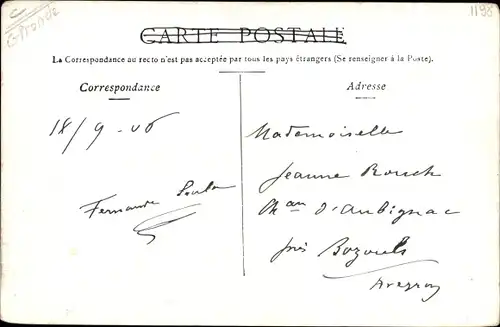 Gironde
1198
CARTE POSTALE
La Correspondance au recto n'est pas acceptée par tous les pays étrangers (Se renseigner à la Poste).
Correspondance
Adresse
18/9-06
Mademoiselle
Jeanne Rouch
Mon d'Aubignac
près Bozouls
Aveyron
Fernande